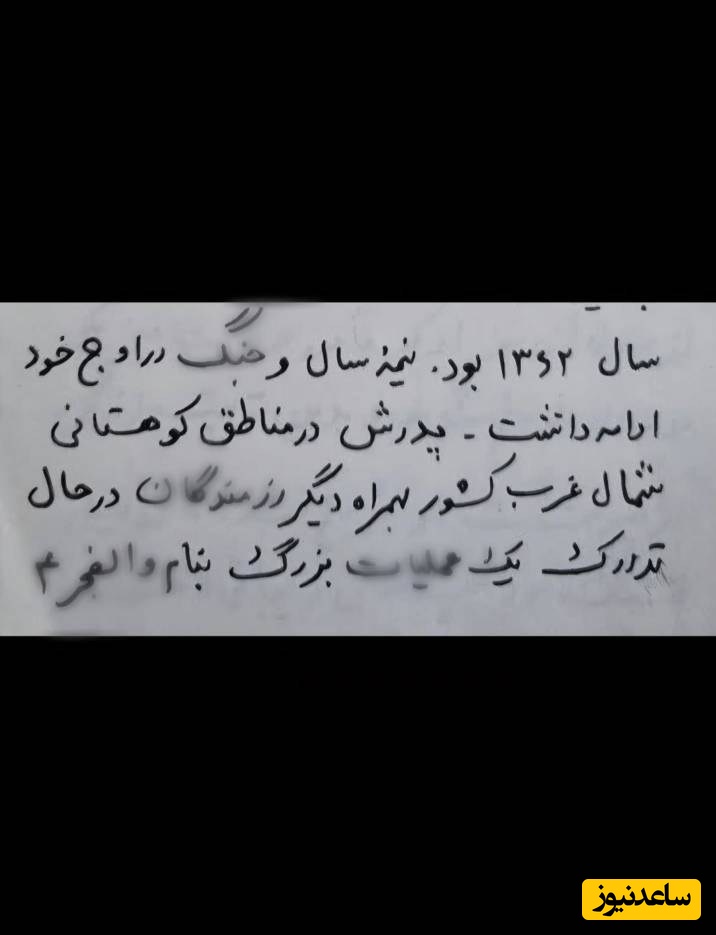 سال ۱۳۶۲ بود. نیمهٔ سال و جنگ در اوج خود
ادامه داشت - پدرش در مناطق کوهستانی
شمال غرب کشور بهمراه دیگر رزمندگان در حال
تدارک یک عملیات بزرگ بنام والفجر ۴
ساعدنیوز